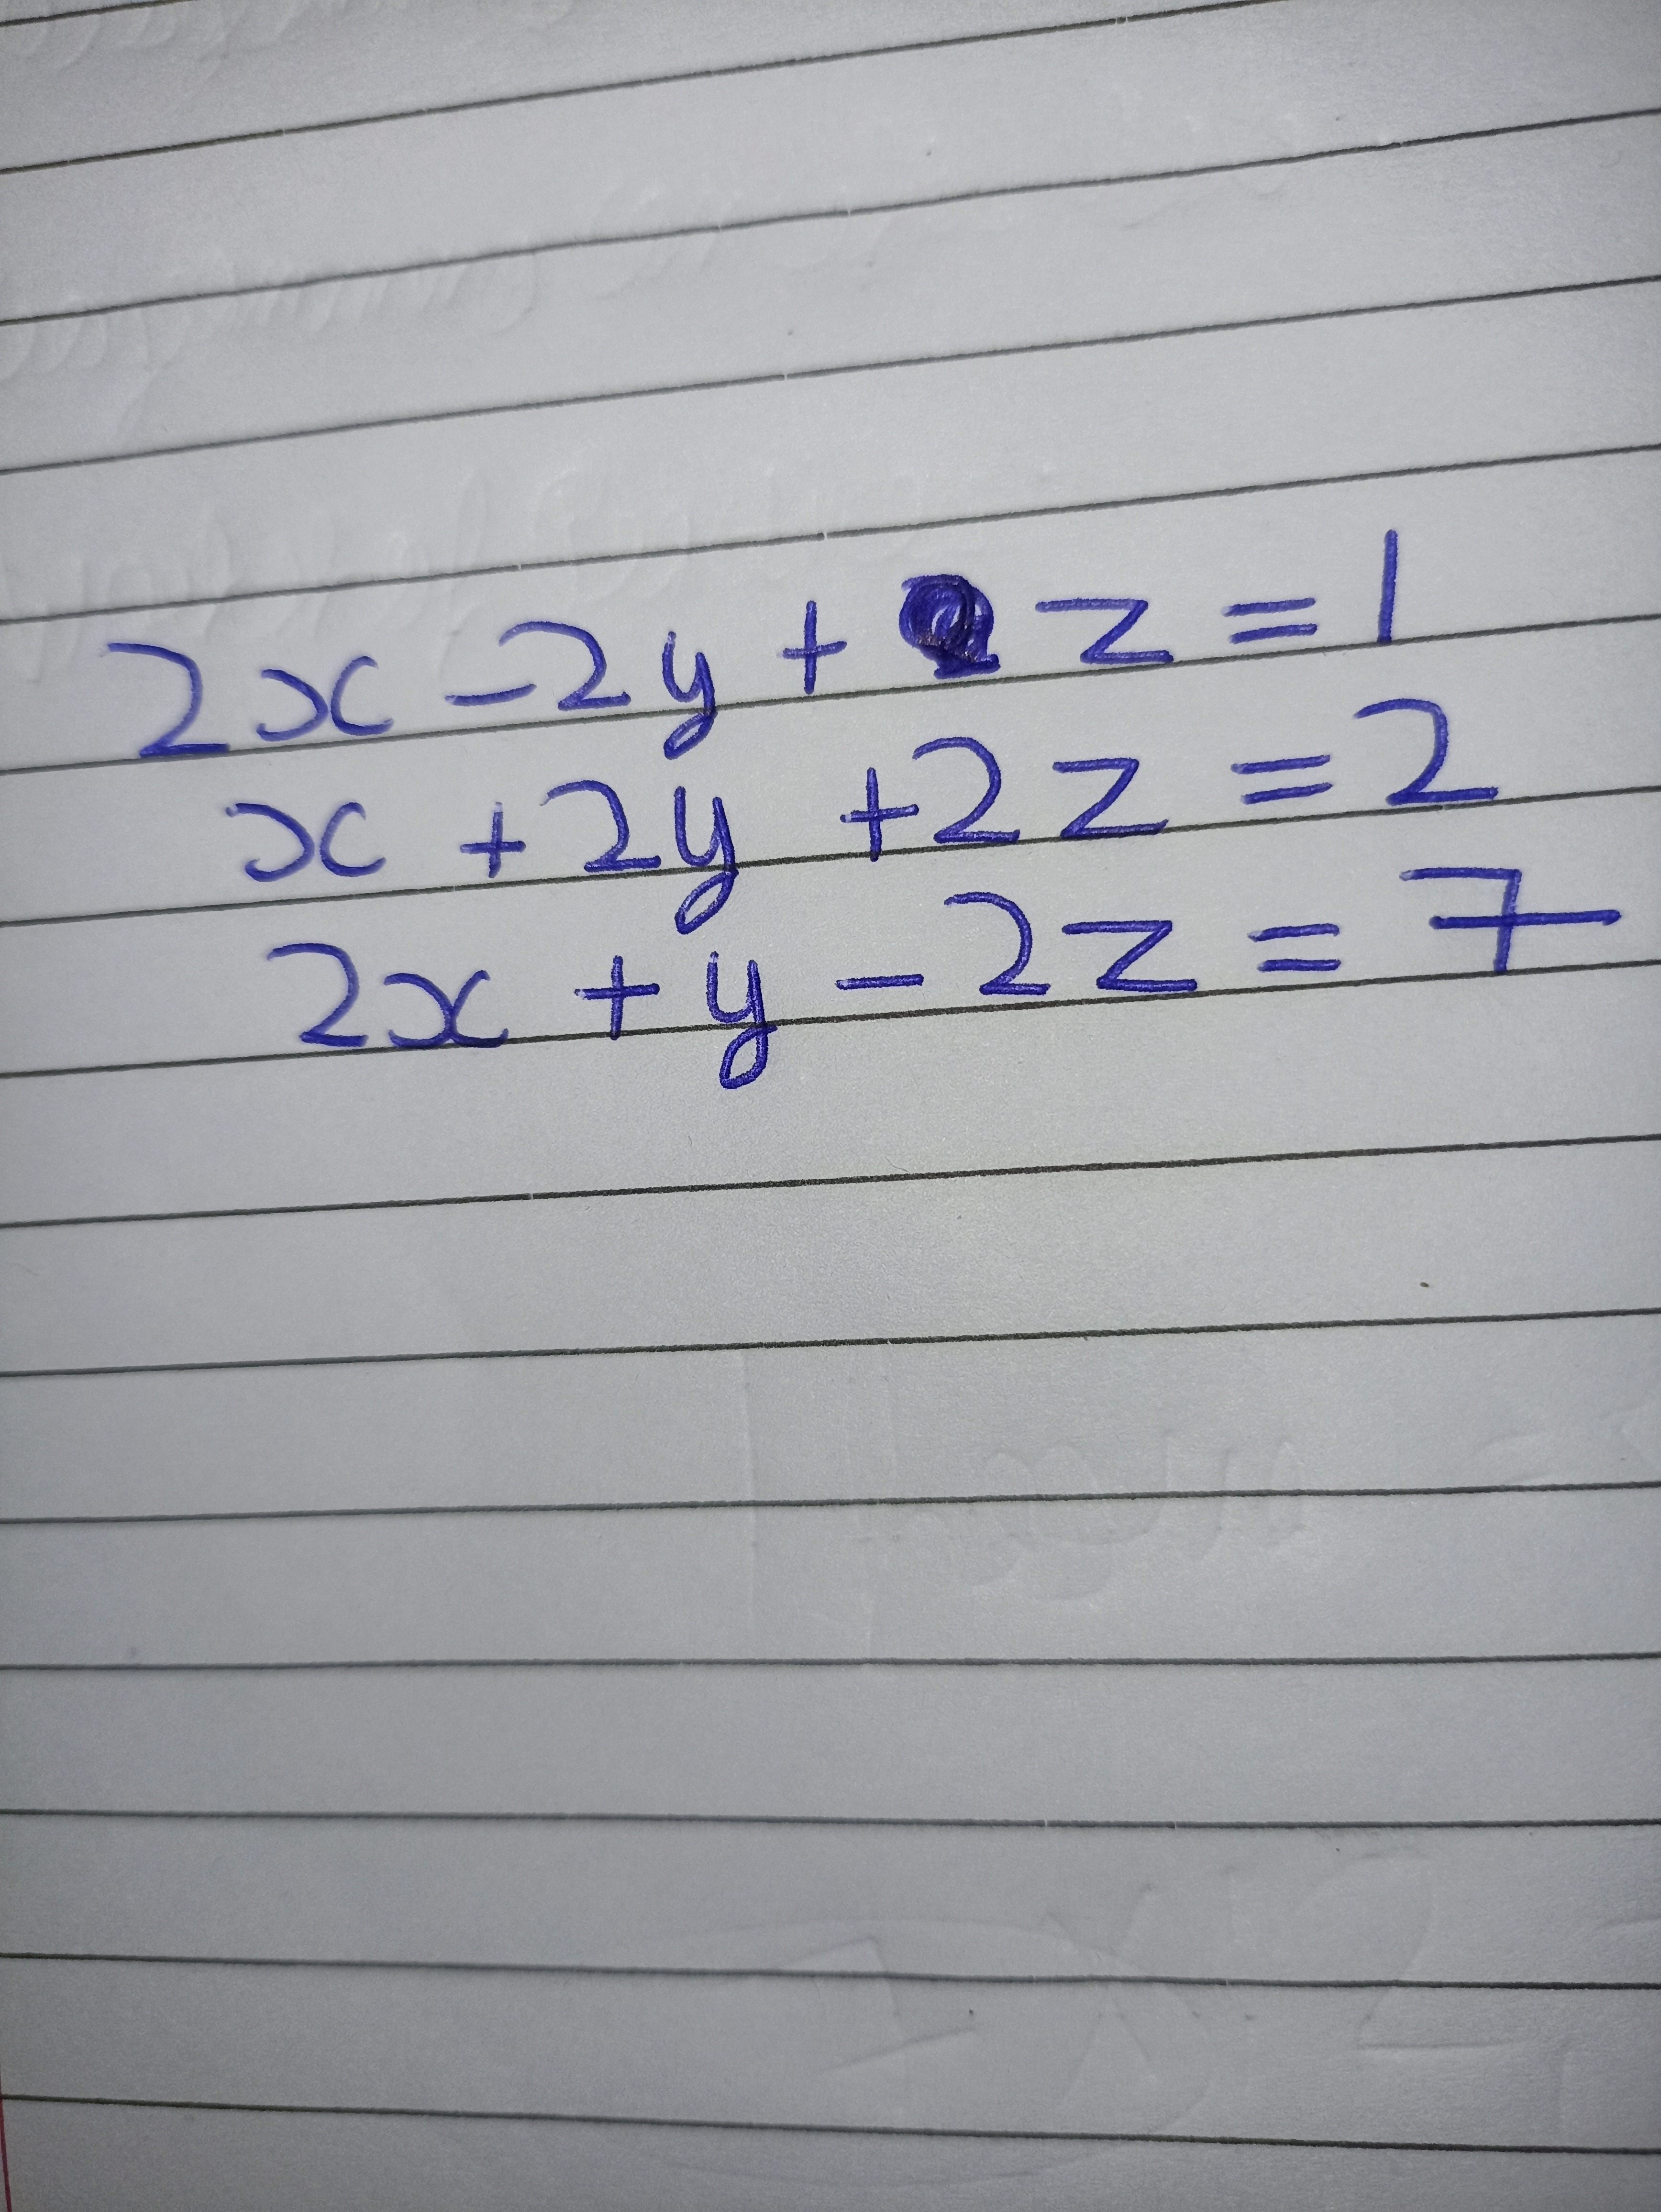 2x - 2y + z = 1
x + 2y + 2z = 2
2x + y - 2z = 7